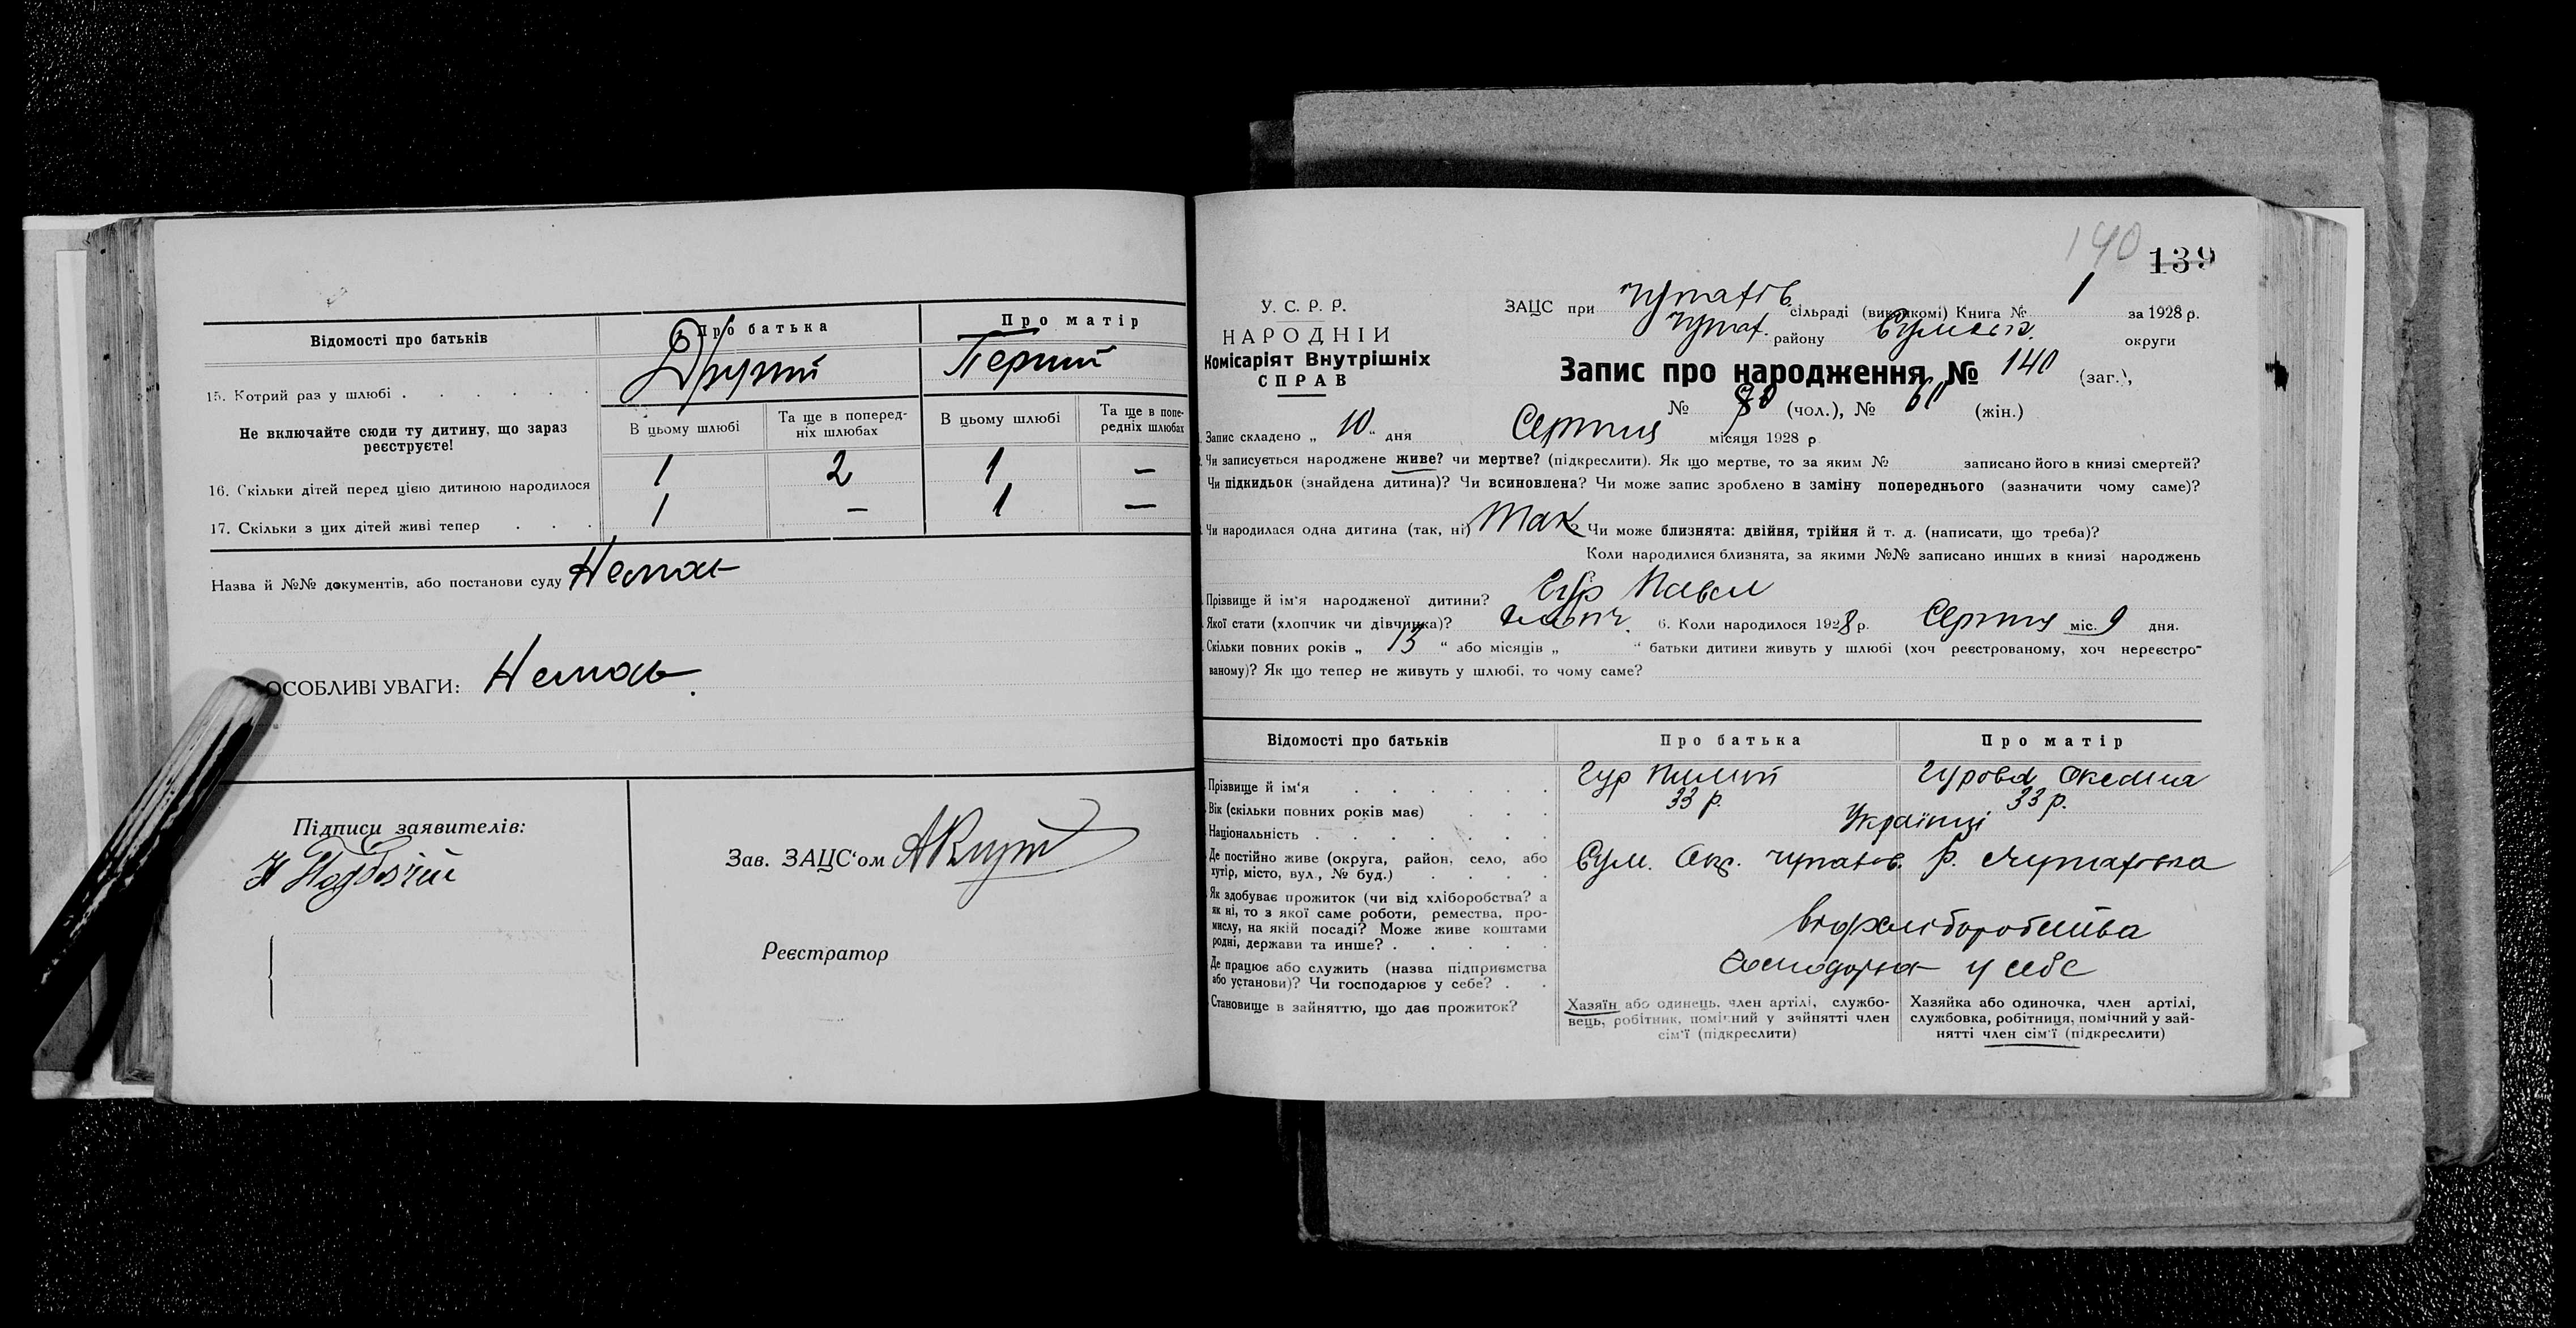 Відомості про батьків
Про батька
Про матір
15. Котрий раз у шлюбі
Другий
Перший
Не включайте сюди ту дитину, що зараз
реєструєте!
В цьому шлюбі
Та ще в поперед-
ніх шлюбах
В цьому шлюбі
Та ще в попе-
редніх шлюбах
16. Скільки дітей перед цією дитиною народилося
1
2
1
—
17. Скільки з цих дітей живі тепер
1
—
1
—
Назва й №№ документів, або постанови суду Немає
ОСОБЛИВІ УВАГИ: Немає.
Підписи заявителів:
Зав. ЗАЦС'ом
Реєстратор
140
139
У. С. Р. Р.
НАРОДНІЙ
Комісаріят Внутрішніх
СПРАВ
ЗАЦС при сільраді (викон­комі) Книга № 1 за 1928 р.
району Сумськ. округи
Запис про народження № 140 (заг.),
№ (чол.), № (жін.)
Запис складено „ 10 " дня Серпня місяця 1928 р
Чи записується народжене живе? чи мертве? (підкреслити). Як що мертве, то за яким № записано його в книзі смертей?
Чи підкидьок (знайдена дитина)? Чи всиновлена? Чи може запис зроблено в заміну попереднього (зазначити чому саме)?
Чи народилася одна дитина (так, ні) Так Чи може близнята: двійня, трійня й т. д. (написати, що треба)?
Коли народилися близнята, за якими №№ записано инших в книзі народжень
Прізвище й ім'я народженої дитини? Гур Павел
Якої стати (хлопчик чи дівчинка)? хлопч. 6. Коли народилося 1928 р. Серпня міс. 9 дня.
Скільки повних років „ 13 " або місяців „ " батьки дитини живуть у шлюбі (хоч реєстрованому, хоч нереєстро-
ваному)? Як що тепер не живуть у шлюбі, то чому саме?
Відомості про батьків
Про батька
Про матір
Прізвище й ім'я
Гур Пилип
Гурова Оксана
Вік (скільки повних років має)
33 р.
33 р.
Національність
Українці
Де постійно живе (округа, район, село, або
хутір, місто, вул., № буд.)
Сум. Окр. р.
Як здобуває прожиток (чи від хліборобства? а
як ні, то з якої саме роботи, ремества, про-
мислу, на якій посаді? Може живе коштами
родні, держави та инше?
від хліборобства
Де працює або служить (назва підприємства
або установи)? Чи господарює у себе?
у себе
Становище в зайняттю, що дає прожиток?
Хазяїн або одинець, член артілі, службо-
вець, робітник, помічний у зайнятті член
сім'ї (підкреслити)
Хазяйка або одиночка, член артілі,
службовка, робітниця, помічний у зай-
нятті член сім'ї (підкреслити)